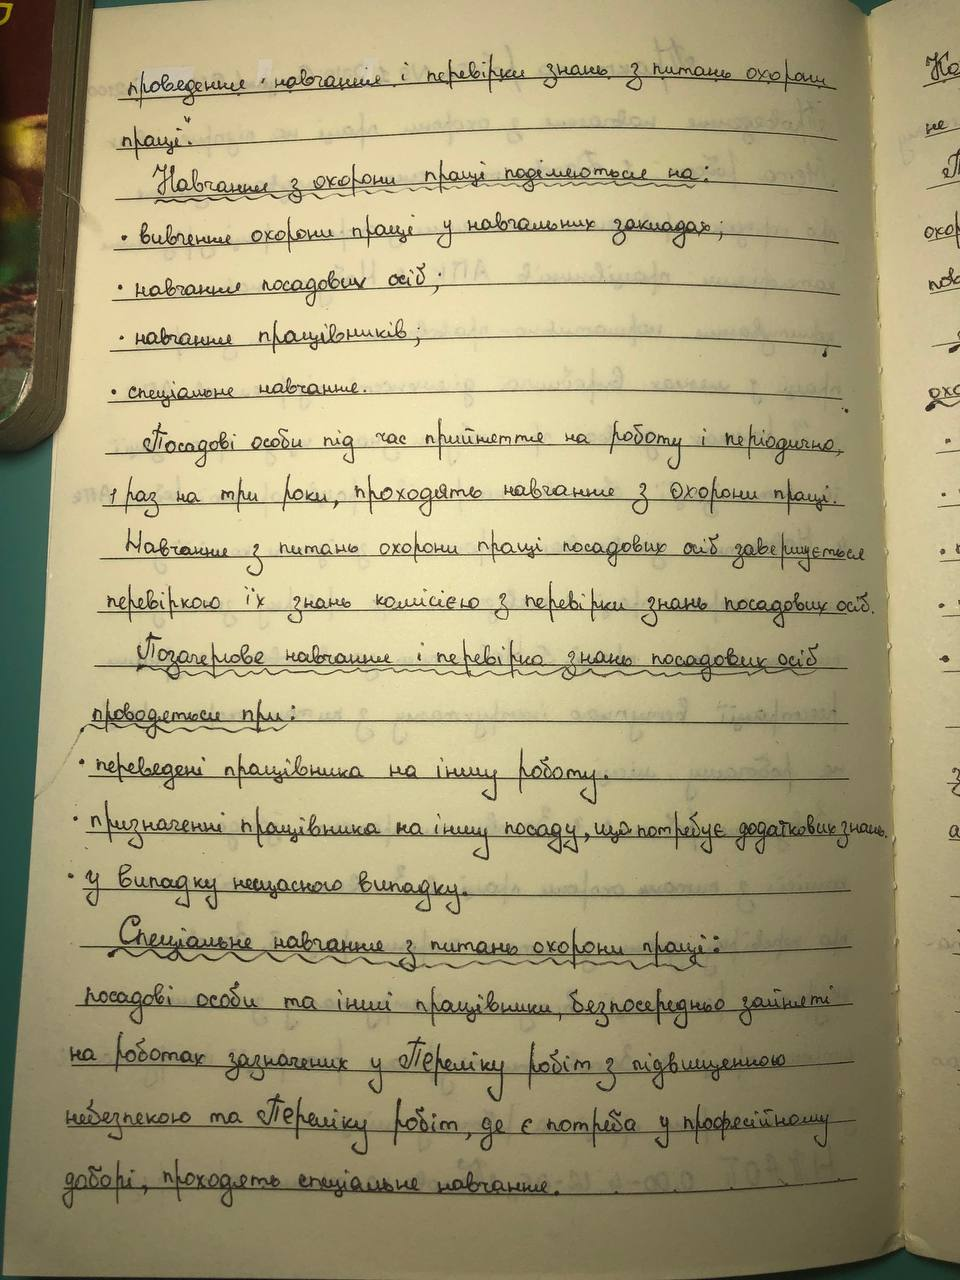 проведення навчання і перевірки знань з питань охорони
праці".
Навчання з охорони праці поділяються на:
· вивчення охорони праці у навчальних закладах;
· навчання посадових осіб;
· навчання працівників;
· спеціальне навчання.
Посадові особи під час прийняття на роботу і періодично,
1 раз на три роки, проходять навчання з охорони праці.
Навчання з питань охорони праці посадових осіб завершується
перевіркою їх знань комісією з перевірки знань посадових осіб.
Позачергове навчання і перевірка знань посадових осіб
проводяться при:
· переведені працівника на іншу роботу.
· призначенні працівника на іншу посаду, що потребує додаткових знань.
· у випадку нещасного випадку.
Спеціальне навчання з питань охорони праці:
посадові особи та інші працівники, безпосередньо зайняті
на роботах зазначених у Переліку робіт з підвищенною
небезпекою та Переліку робіт, де є потреба у професійному
доборі, проходять спеціальне навчання.